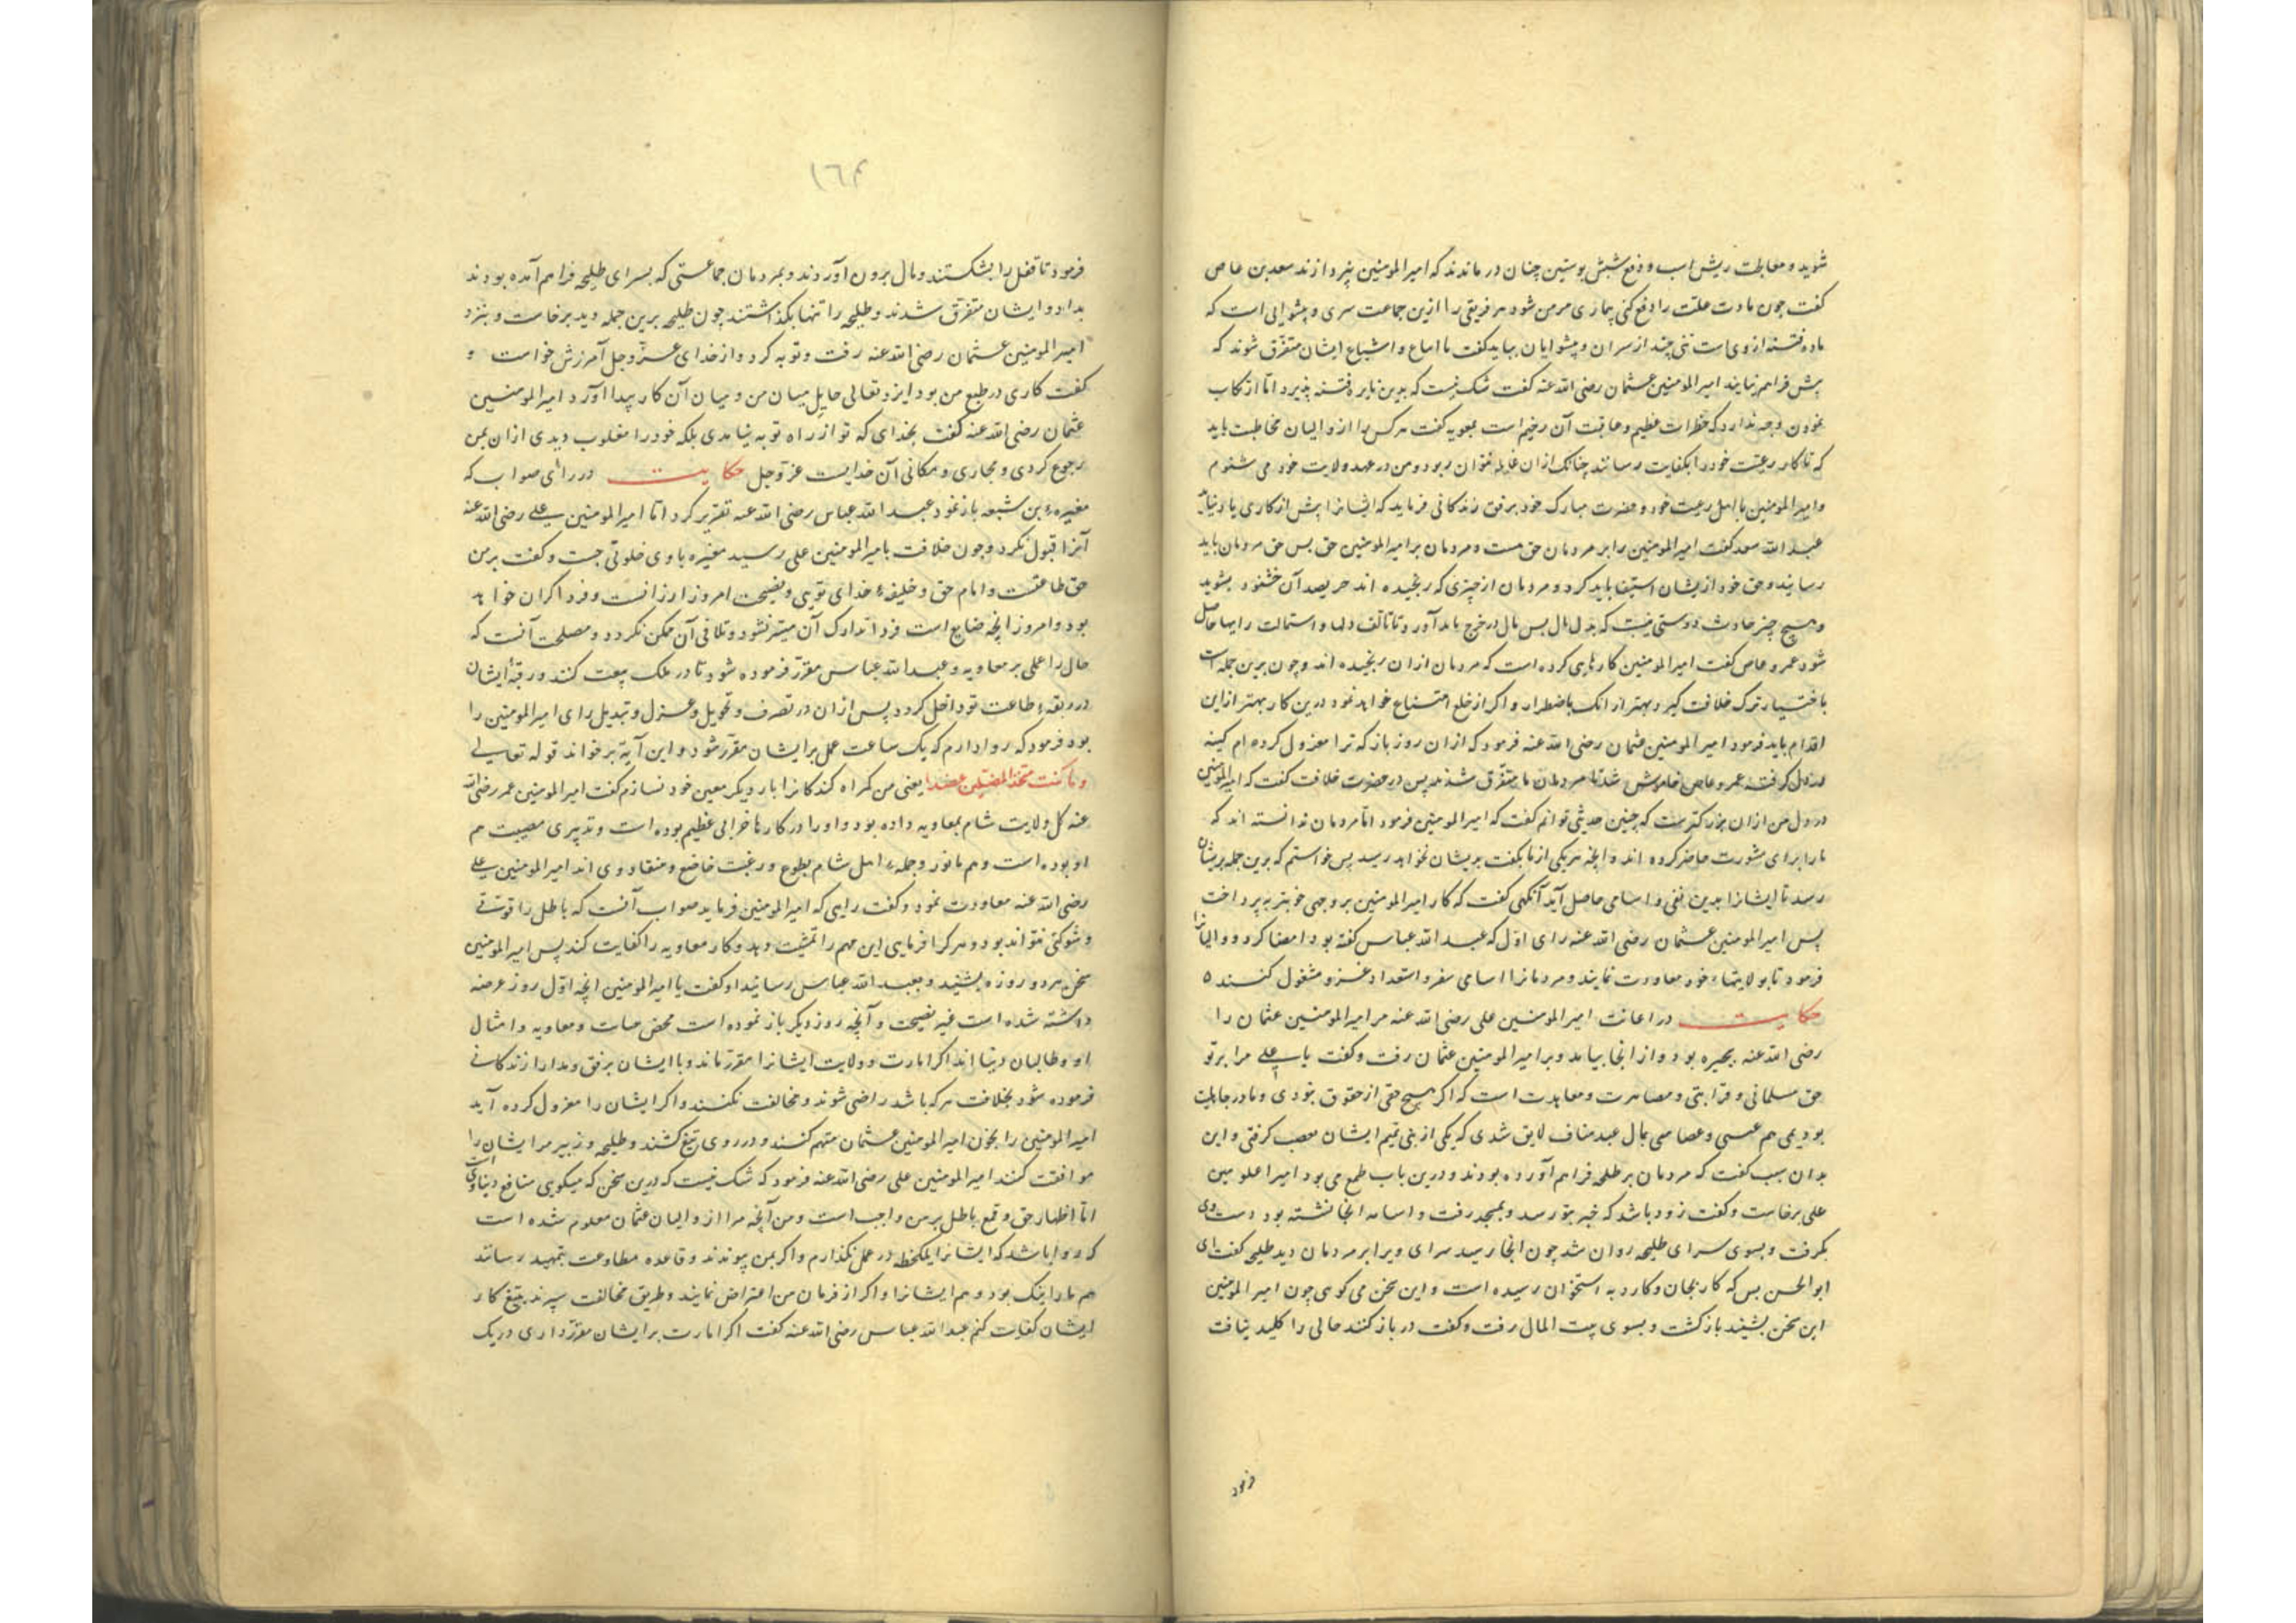 شوید و معالجت ریش اسب و دفع شپش پوستین چنان در ماندند که امیرالمومنین نپردازند سعد بن عاص
گفت چون مادت علت را دفع کنی بیماری مزمن شود هر فریقی را ازین جماعت سری و پیشوایی است که
ماده فتنه ازوی است تنی چند از سران و پیشوایان بباید کفت تا اتباع و اشیاع ایشان متفرق شوند که
پیش فراهم نیایند امیرالمومنین عثمان رضی الله عنه گفت شک نیست که بدین نایره فتنه پذیرد اما ارتکاب
نمودن وجه ندارد که خطرات عظیم و عاقبت آن وخیم است بمعویه گفت هر کس را از والیان مخاطبت باید
که تا کار رعیت خود را بکفایت رساند چنانک ازان غایله نتوان بود و من در عهد ولایت خود می شنوم
و امیرالمومنین با اهل رعیت خود و حضرت مبارک خود برفق زندکانی فرماید که ایشانرا پیش ازکاری یاد نیاید
عبد الله سعد کفت امیرالمومنین را بر مردمان حق هست و مردمان بر امیرالمومنین حق پس حق مردمان باید
رسانید و حق خود ازیشان استیفا باید کرد و مردمان از چیزی که رنجیده اند حریصد آن خشنود بشوید
و هیچ چیز حادث دوستی نیست که بذل مال پس مال در خرج باید آورد تا تالف دلها و استمالت رایها حاصل
شود عمرو عاص کفت امیرالمومنین کارهایی کرده است که مردمان ازان رنجیده اند و چون برین جمله است
باختیار ترک خلافت کیرد بهتر از انک باضطرار و اکر از خلع امتناع خواهد نمود درین کار بهتر ازاین
اقدام باید فرمود امیرالمومنین عثمان رضی الله عنه فرمود که ازان روز باز که ترا معزول کرده ام کینه
در دل کرفته عمرو عاص خاموش شد تا مردمان متفرق شدند پس در حضرت خلافت کفت که امیرالمومنین
در دل من ازان بزرکترست که چنین حدیثی توانم کفت که امیرالمومنین فرمود اما مردمان دانسته اند که
مارا برای مشورت حاضر کرده اند و آنچه هر یکی از ما بکفت بریشان نخواهد رسید پس خواستم که برین جمله بریشان
رسد تا ایشانرا بدین نفی و اسامی حاصل آید آنکهی کفت که کار امیرالمومنین بر وجهی خوبتر بپرداخت
پس امیرالمومنین عثمان رضی الله عنه رای اول که عبد الله عباس کفته بود امضا کرد و والیانرا
فرمود تا بولایتهاء خود معاودت نمایند و مردمانرا اسامی سفر و استعداد غزو مشغول کنند ٥
حکایت در اعانت امیرالمومنین علی رضی الله عنه مر امیرالمومنین عثمان را
رضی الله عنه بحیره بود و از انجا بیامد و بر امیرالمومنین عثمان رفت و کفت یا علی مرا برتو
حق مسلمانی و قرابتی و مصاهرت و معاهدت است که اکر هیچ حقی از حقوق نبودی و ما در جاهلیت
بودیمی هم عیسی و عصامی بمال عبد مناف لایق شدی که یکی از بنی تمیم ایشان معصب کرفتی و این
بدان سبب کفت که مردمان بر طلحه فراهم آورده بودند و درین باب طمع می بود امیرالمومنین
علی برخاست و کفت زود باشد که خبر بتو رسد و بمسجد رفت و اسامه انجا نشسته بود دست وی
بکرفت و بسوی سرای طلیحه روان شد چون انجا رسید سرای ویرا بر مردمان دید طلیحه کفت ای
ابوالحسن بس که کار بجان و کارد به استخوان رسیده است و این سخن می کوی چون امیرالمومنین
این سخن بشنید بازکشت و بسوی بیت المال رفت و کفت در باز کنند حالی را کلید نیافت
فرمود
١٦٤
فرمود تا قفل را بشکستند و مال برون آوردند و بمردمان جماعتی که بسرای طلیحه فراهم آمده بودند
بداد و ایشان متفرق شدند و طلیحه را تنها بکذاشتند چون طلیحه برین جمله دید برخاست و بنزد
امیرالمومنین عثمان رضی الله عنه رفت و توبه کرد و از خدای عزوجل آمرزش خواست و
کفت کاری در طبع من بود ایزد تعالی حایل میان من و میان آن کار پیدا آورد امیرالمومنین
عثمان رضی الله عنه کفت بخدای که تو از راه توبه نیامدی بلکه خود را مغلوب دیدی ازان بمن
رجوع کردی و مجازی و مکافی آن خدایست عزوجل حکایت در رای صواب که
مغیرهء بن شعبه باز نمود عبد الله عباس رضی الله عنه تقریر کرد اما امیرالمومنین علی رضی الله عنه
آنرا قبول نکرد و چون خلافت بامیرالمومنین علی رسید مغیره با وی خلوتی جست و کفت بر من
حق طاعتست و امام حق و خلیفهء خدای تویی و نصیحت امروز ارزانست و فردا کران خواهد
بود و امروز آنچه ضایع است فردا تدارک آن میسر نشود و تلافی آن ممکن نکردد و مصلحت آنست که
حال را عملی بر معاویه و عبد الله عباس مقرر فرموده شود تا در ملک بیعت کنند و رقبهٔ ایشان
در ربقهء طاعت تو داخل کردد پس ازان در تصرف و تحویل و عزل و تبدیل رای امیرالمومنین را
بود فرمود که روا دارم که یک ساعت عمل بر ایشان مقرر شود و این آیة برخواند قوله تعالی
وما کنت متخذ المضلین عضدا یعنی من کمراه کنندکانرا یار دیکر معین خود نسازم کفت امیرالمومنین عمر رضی الله
عنه کل ولایت شام بمعاویه داده بود و او را در کارها خرابی عظیم بوده است و تدبیری مصیبت هم
او بوده است و هم مانوز و جملهء اهل شام بطوع و رغبت خاضع و منقاد وی اند امیرالمومنین علی
رضی الله عنه معاودت نمود و کفت راهی که امیرالمومنین فرماید صواب آنست که باطل را قوتی
و شوکتی نتواند بود و هر کرا فرمایی این مهم را تمشیت دهد و کار معاویه را کفایت کند پس امیرالمومنین
سخن هر دو روزه بشنید و بعبد الله عباس رسانید او کفت یا امیرالمومنین آنچه اول روز عرضه
داشته شده است غیر نصیحت و آنچه روز دیکر باز نموده است محض میات و معاویه و امثال
او و طالبان دنیا اند اکر امارت و ولایت ایشانرا مقرر ماند و با ایشان برفق و مدارا زندکانی
فرموده شود بخلافت هر که باشد راضی شوند و مخالفت نکنند و اکر ایشان را معزول کرده آید
امیرالمومنین را بخون امیرالمومنین عثمان متهم کنند و در روی تیغ کشند و طلیحه و زبیر مر ایشان را
موافقت کنند امیرالمومنین علی رضی الله عنه فرمود که شک نیست که درین سخن که میکویی منافع دنیاوی است
اما اظهار حق و قمع باطل بر من واجب است و من آنچه مرا از والیان عثمان معلوم شده است
که روا باشد که ایشانرا یکلحظه در عمل نکذارم و اکر بمن پیوندند و قاعده مطاوعت بتمهید رسانند
هم ما را نیک بود و هم ایشانرا و اکر از فرمان من اعتراض نمایند و طریق مخالفت سپرند بتیغ کار
ایشان کفایت کنم عبد الله عباس رضی الله عنه کفت اکر امارت بر ایشان مقرر داری در یک